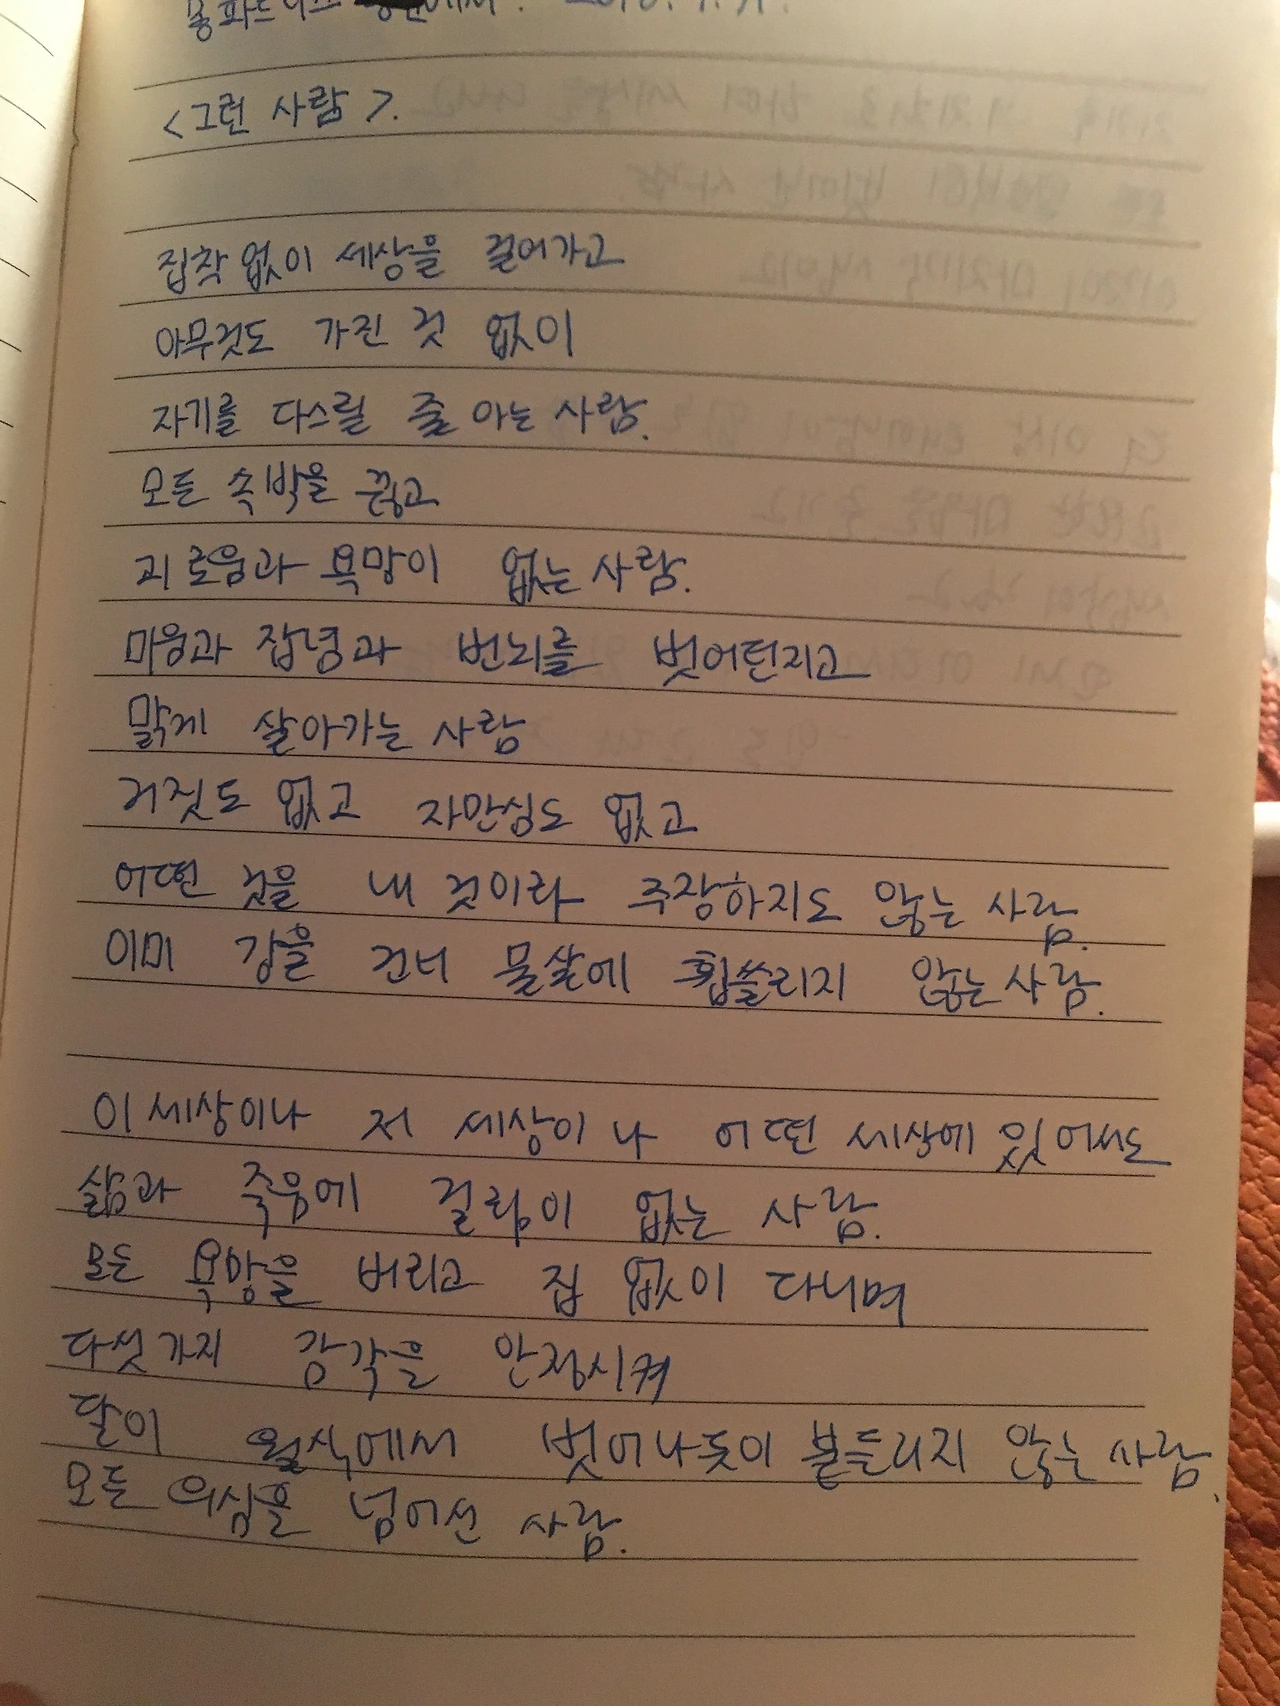 <그런 사람>.
집착 없이 세상을 걸어가고
아무것도 가진 것 없이
자기를 다스릴 줄 아는 사람.
모든 속박을 끊고
괴로움과 욕망이 없는 사람.
미움과 잡념과 번뇌를 벗어던지고
맑게 살아가는 사람
거짓도 없고 자만심도 없고
어떤 것을 내 것이라 주장하지도 않는 사람.
이미 강을 건너 물살에 휩쓸리지 않는 사람.
이 세상이나 저 세상이나 어떤 세상에 있어서도
삶과 죽음에 걸림이 없는 사람.
모든 욕망을 버리고 집 없이 다니며
다섯가지 감각을 안정시켜
달이 월식에서 벗어나듯이 붙들리지 않는 사람.
모든 의심을 넘어선 사람.